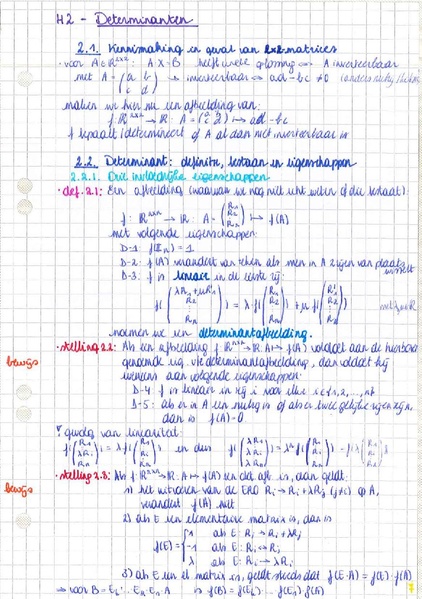 H2 - Determinanten
2.1. Kennismaking in geval van 2x2-matrices
· voor A ∈ R²ˣ² : A·X = B heeft unieke oplossing ⇔ A inverteerbaar
met A = (a b; c d) → inverteerbaar ⇔ ad - bc ≠ 0
maken we hier nu een afbeelding van:
f: R²ˣ² → R : A = (a b; c d) ↦ ad - bc
f bepaalt/determineert of A al dan niet inverteerbaar is
2.2. Determinant: definitie, bestaan en eigenschappen
2.2.1. Drie invloedrijke eigenschappen
· def. 2.1: Een afbeelding (waarvan we nog niet echt weten of die bestaat):
f: Rⁿˣⁿ → R : A = (R₁; R₂; ⋮; Rₙ) ↦ f(A)
met volgende eigenschappen:
D-1: f(𝕀ₙ) = 1
D-2: f(A) verandert van teken als men in A 2 rijen van plaats wisselt
D-3: f is lineair in de eerste rij:
f(λR₁ + μR₁'; R₂; ⋮; Rₙ) = λ·f(R₁; R₂; ⋮; Rₙ) + μ·f(R₁'; R₂; ⋮; Rₙ) met λ, μ ∈ R
noemen we een determinantafbeelding.
· stelling 2.2: Als een afbeelding f: Rⁿˣⁿ → R : A ↦ f(A) voldoet aan de hierboven
bewijs
genoemde eig. vd determinantafbeelding, dan voldoet hij
eveneens aan volgende eigenschappen:
D-4: f is lineair in rij i voor elke i ∈ {1, 2, ..., n}
D-5: als er in A een nulrij is of als er twee gelijke rijen zijn,
dan is f(A) = 0
gevolg van lineariteit:
f(R₁; λRᵢ; Rₙ) = λf(R₁; Rᵢ; Rₙ) en dus f(λR₁; λRᵢ; λRₙ) = λⁿf(R₁; Rᵢ; Rₙ)
· stelling 2.3: Als f: Rⁿˣⁿ → R : A ↦ f(A) een det. afb. is, dan geldt:
bewijs
1) het uitvoeren van de ERO Rᵢ → Rᵢ + λRⱼ (j≠i) op A,
verandert f(A) niet
2) als E een elementaire matrix is, dan is
f(E) = { 1 als E: Rᵢ → Rᵢ + λRⱼ
-1 als E: Rᵢ ↔ Rⱼ
λ als E: Rᵢ → λRᵢ
3) als E een el. matrix is, geldt steeds dat f(E·A) = f(E)·f(A)
→ voor B = Eₖ ... E₂·E₁·A is f(B) = f(Eₖ) ... f(E₁) f(A)
7